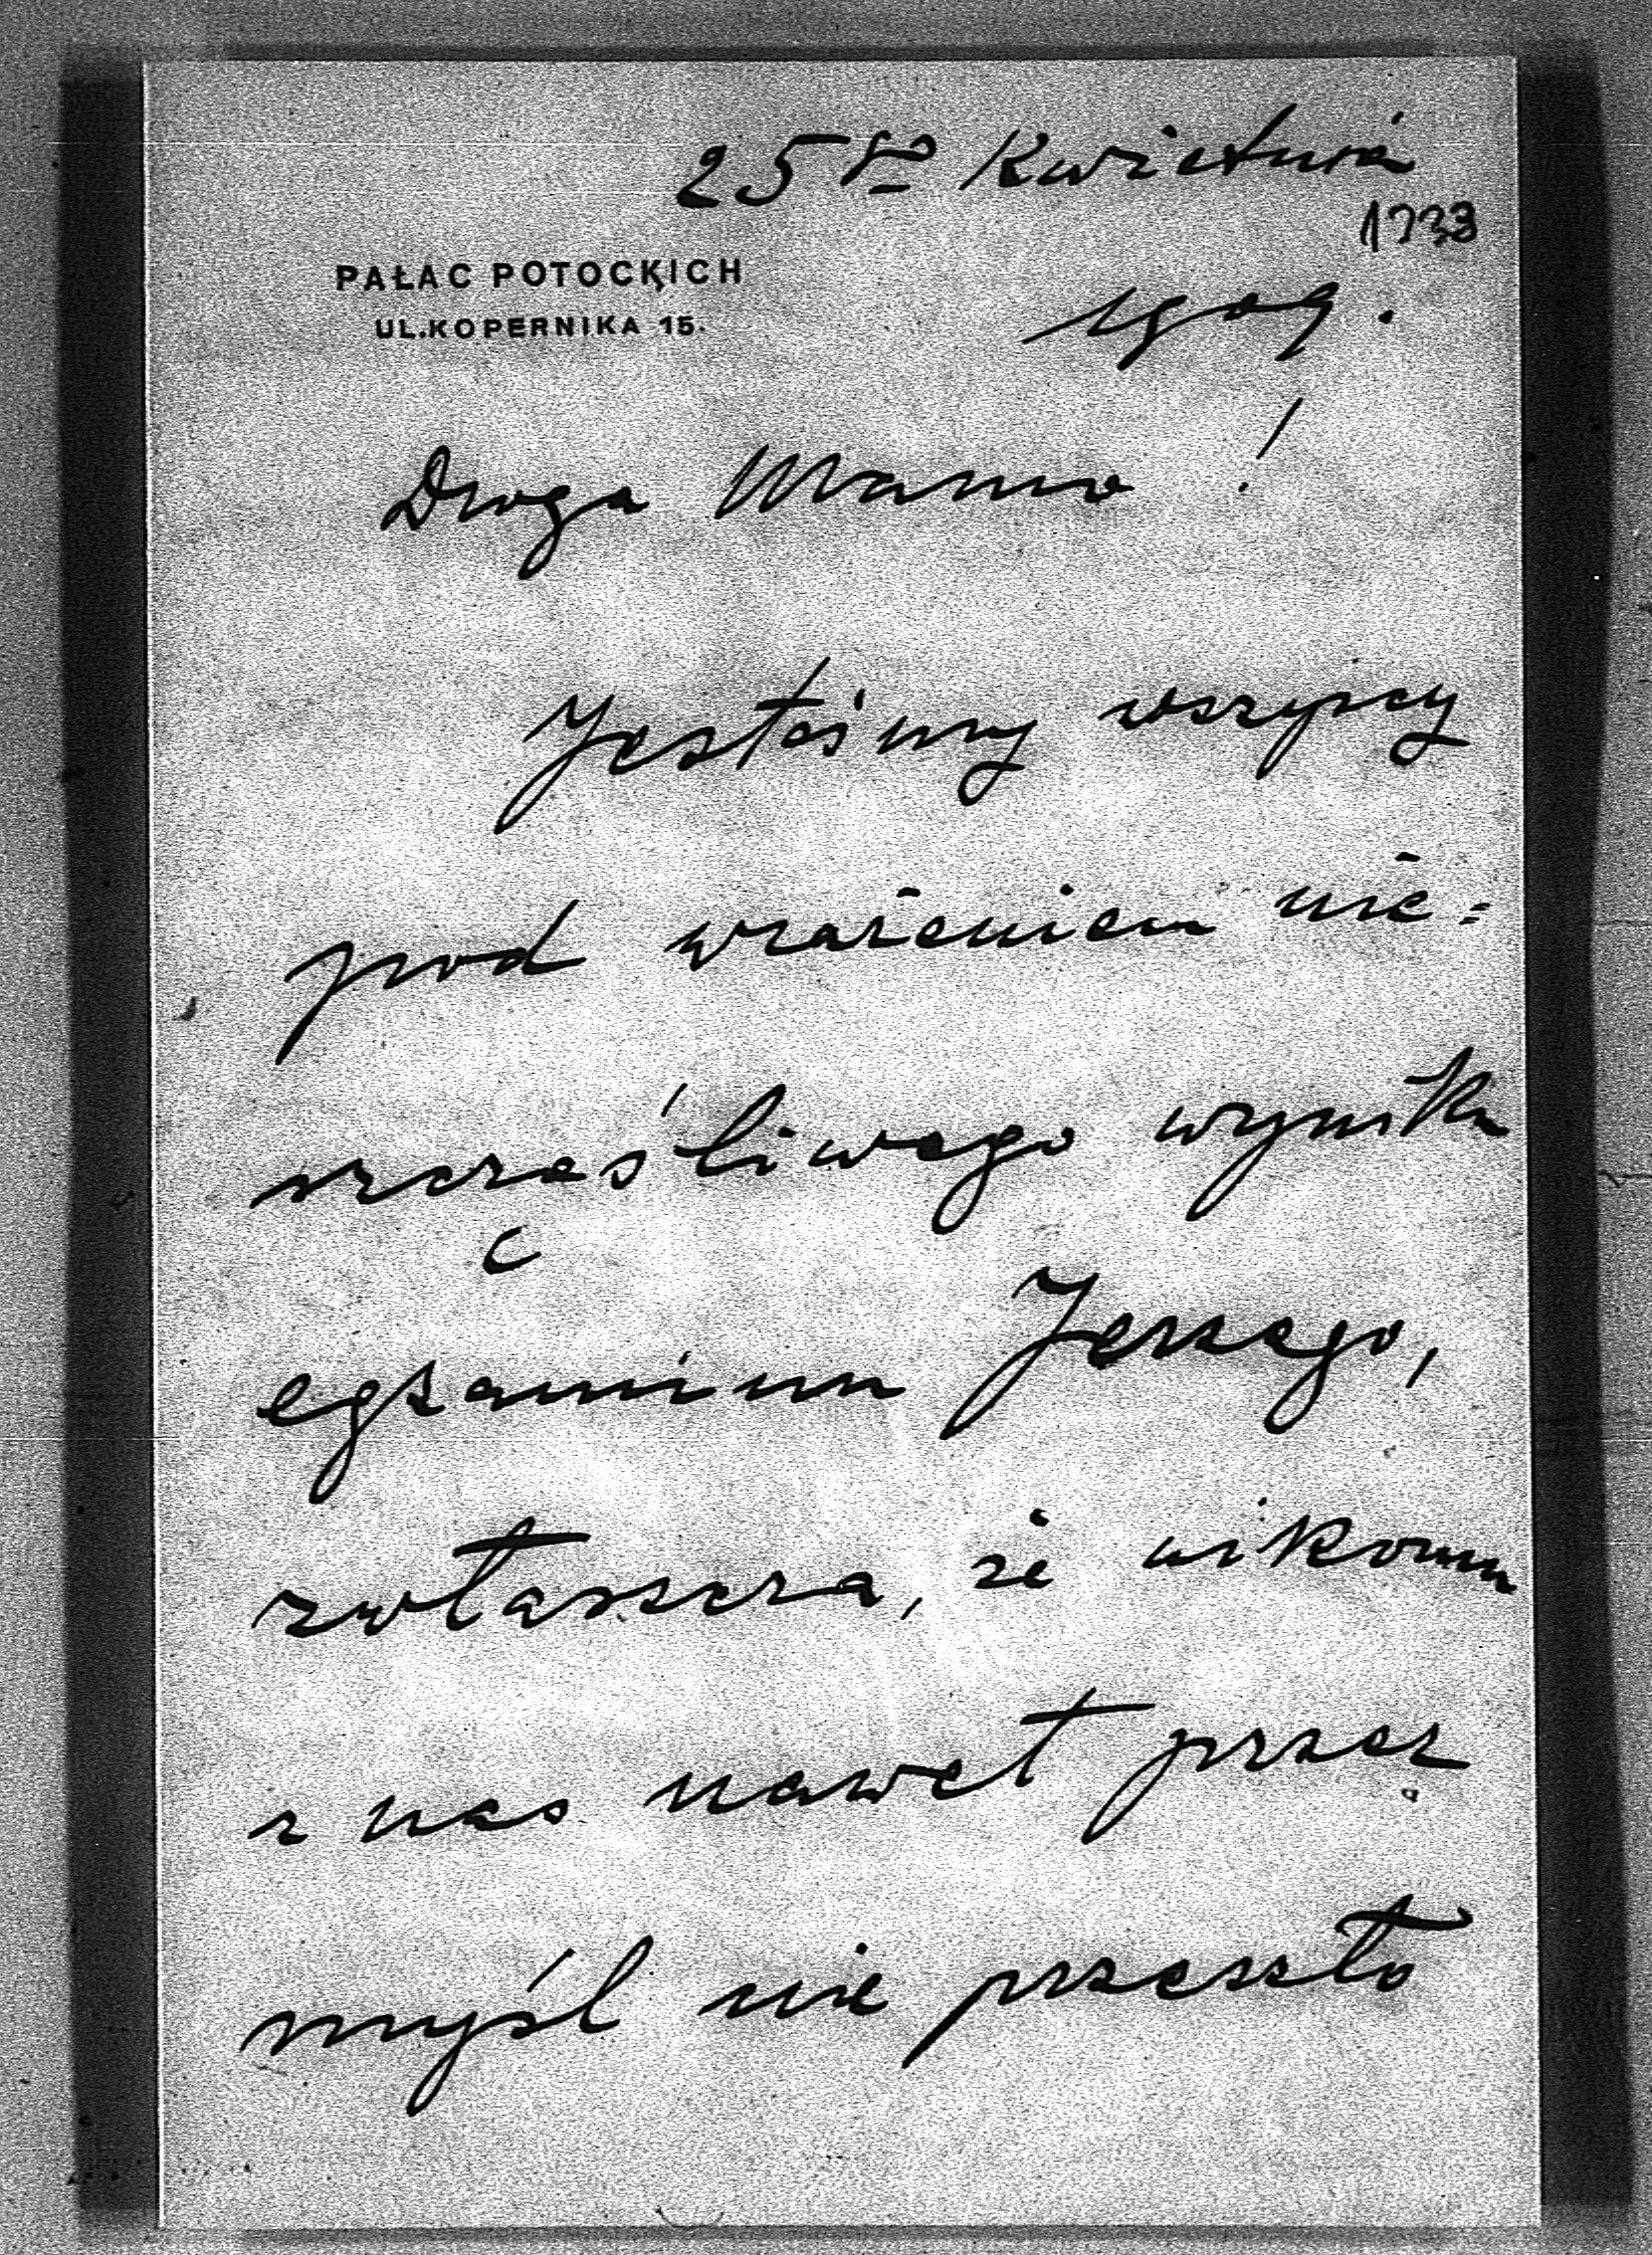 25go Kwietnia
1733
PAŁAC POTOCKICH
UL.KOPERNIKA 15.
1909.
Droga Mamo!
Jesteśmy wszyscy
pod wrażeniem nie=
szczęśliwego wyniku
egzaminu Jerzego,
zwłaszcza, że nikomu
z nas nawet przez
myśl nie przeszło